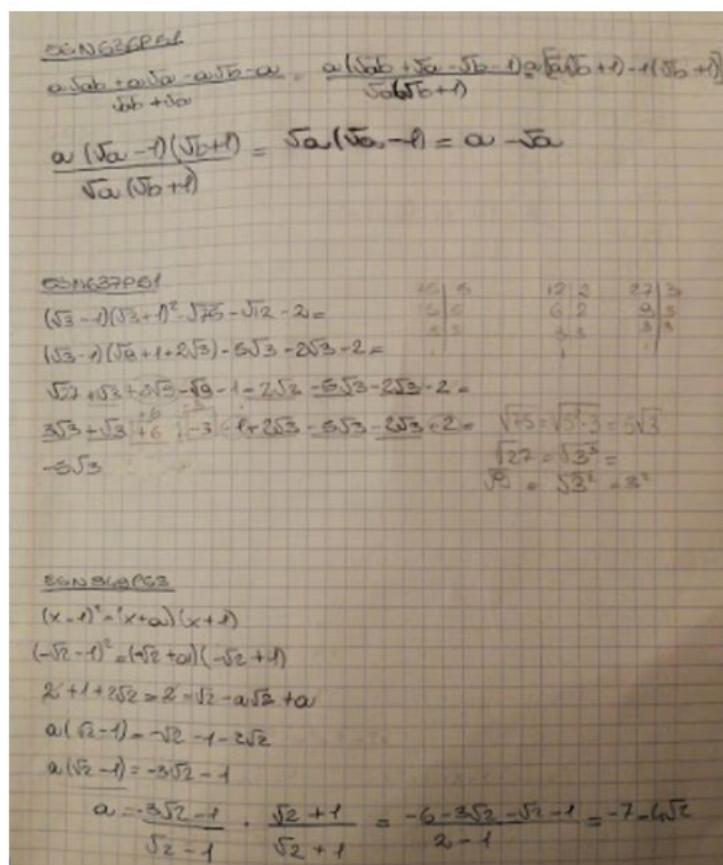 a√ab + a√a - a√b - a / √ab + √a = a(√ab + √a - √b - 1) / √a(√b + 1) = a[√a(√b + 1) - 1(√b + 1)]
a(√a - 1)(√b + 1) / √a(√b + 1) = √a(√a - 1) = a - √a
ESN637P51
(√3 - 1)(√3 + 1)² - √75 - √12 - 2 =
(√3 - 1)(√9 + 1 + 2√3) - 5√3 - 2√3 - 2 =
√27 + √3 + - √9 - 1 - 2√3 - 5√3 - 2√3 - 2 =
3√3 + √3 + 6 - 3 - 1 + 2√3 - 5√3 - 2√3 - 2 =
-5√3
75 | 5
12 | 2
6 2
3 3
1
27 | 3
9 3
3 3
√75 = √5²·3 = 5√3
√27 = √3³ =
√9 = √3² = 3²
(x - 1)² = (x + a)(x + 1)
(-√2 - 1)² = (-√2 + a)(-√2 + 1)
2 + 1 + 2√2 = 2 - √2 - a√2 + a
a(√2 - 1) = -√2 - 1 - 2√2
a(√2 - 1) = -3√2 - 1
a = -3√2 - 1 / √2 - 1 · √2 + 1 / √2 + 1 = -6 - 3√2 - √2 - 1 / 2 - 1 = -7 - 4√2